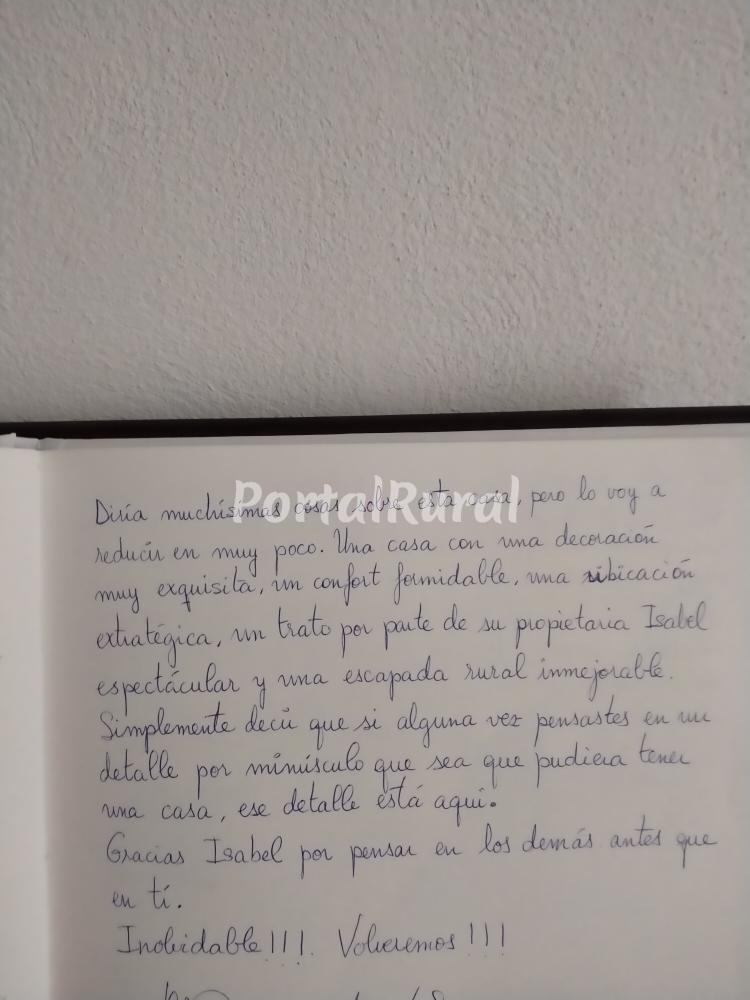 PortalRural
Diría muchísimas cosas sobre esta casa, pero lo voy a
reducir en muy poco. Una casa con una decoración
muy exquisita, un confort formidable, una ubicación
extratégica, un trato por parte de su propietaria Isabel
espectácular y una escapada rural inmejorable.
Simplemente decir que si alguna vez pensastes en un
detalle por mínúsculo que sea que pudiera tener
una casa, ese detalle está aquí.
Gracias Isabel por pensar en los demás antes que
en tí.
Inolvidable!!!. Volveremos!!!